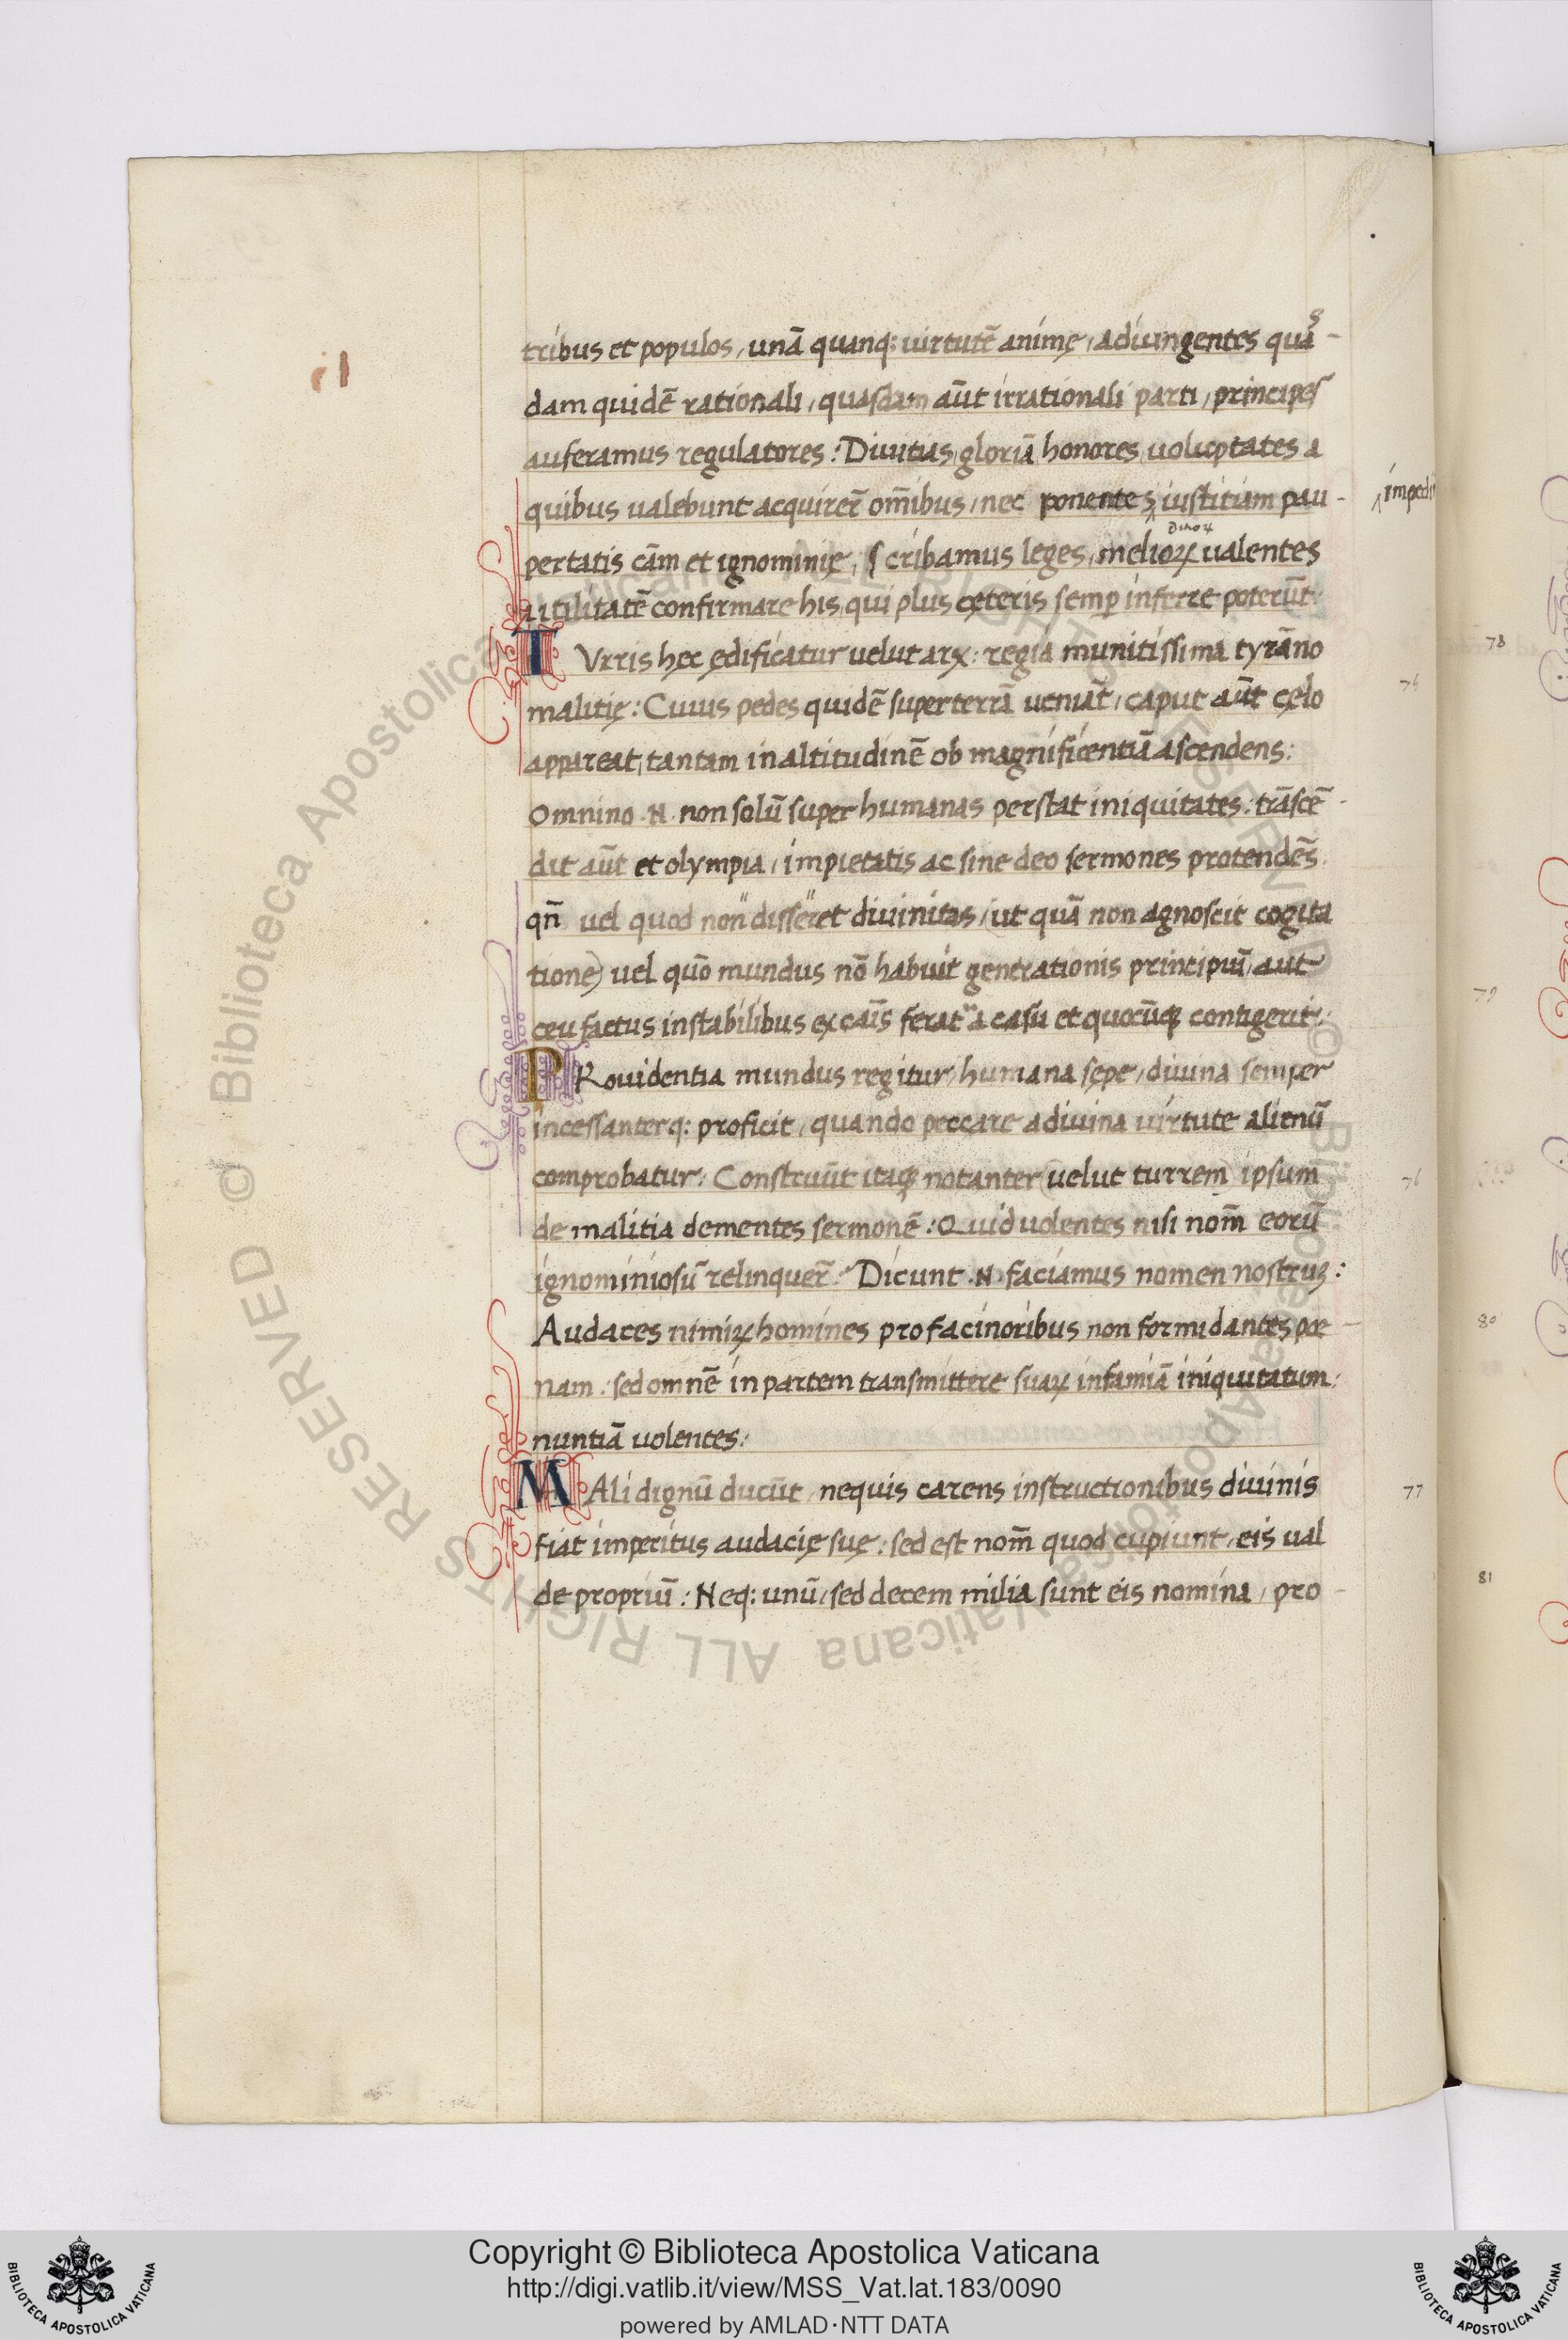 tribus et populos, unā quanq: uirtutē animę, adiungentes quas-
dam quidē rationali, quasdam aūt irrationali parti, principes
auferamus regulatores: Diuitias, gloriā, honores, uoluptates a
quibus ualebunt acquirer̄ om̄ibus, nec ponentes iustitiam pau-
pertatis cām et ignominię, scribamus leges, melioꝝ ualentes
utilitatē confirmare his, qui plus cęteris semp̄ inferre poterūt:
TUrris hęc ędificatur uelut arx: regia munitissima tyrāno
malitię: Cuius pedes quidē super terrā ueniāt, caput aūt cęlo
appareat, tantam in altitudinē ob magnificentiā ascendens:
Omnino .N. non solū super humanas perstat iniquitates: trāscē-
dit aūt et olympia, impietatis ac sine deo sermones protendēs
qn̄ uel quod non disseret diuinitas, (ut quā non agnoscit cogita
tione) uel quō mundus nō habuit generationis principiū, aut
ceu factus instabilibus ex caīs ferat" a casu et quocūꝙ contigerit:
PRouidentia mundus regitur, humana sępe, diuina semper
incessanterq: proficit, quando peccare a diuina uirtute alienū
comprobatur: Construūt itaꝙ notanter (uelut turrem) ipsum
de malitia dementes sermonē: Quid uolentes nisi nom̄ eorū
ignominiosū relinquer̄: Dicunt .N. faciamus nomen nostruꝫ:
Audaces nimiꝝ homines pro facinoribus non formidantes pœ-
nam: sed omnē in partem transmittere suaꝝ infamiā iniquitatum:
nuntiā uolentes:
MAli dignū ducūt, nequis carens instructionibus diuinis
fiat imperitus audacię suę: sed est nom̄ quod cupiunt, eis ual
de propriū: Neq: unū, sed decem milia sunt eis nomina, pro-
impedi
78
79
76
80
77
81
Copyright © Biblioteca Apostolica Vaticana
http://digi.vatlib.it/view/MSS_Vat.lat.183/0090
powered by AMLAD·NTT DATA
BIBLIOTECA APOSTOLICA VATICANA
BIBLIOTECA APOSTOLICA VATICANA
© Biblioteca Apostolica Vaticana ALL RIGHTS RESERVED